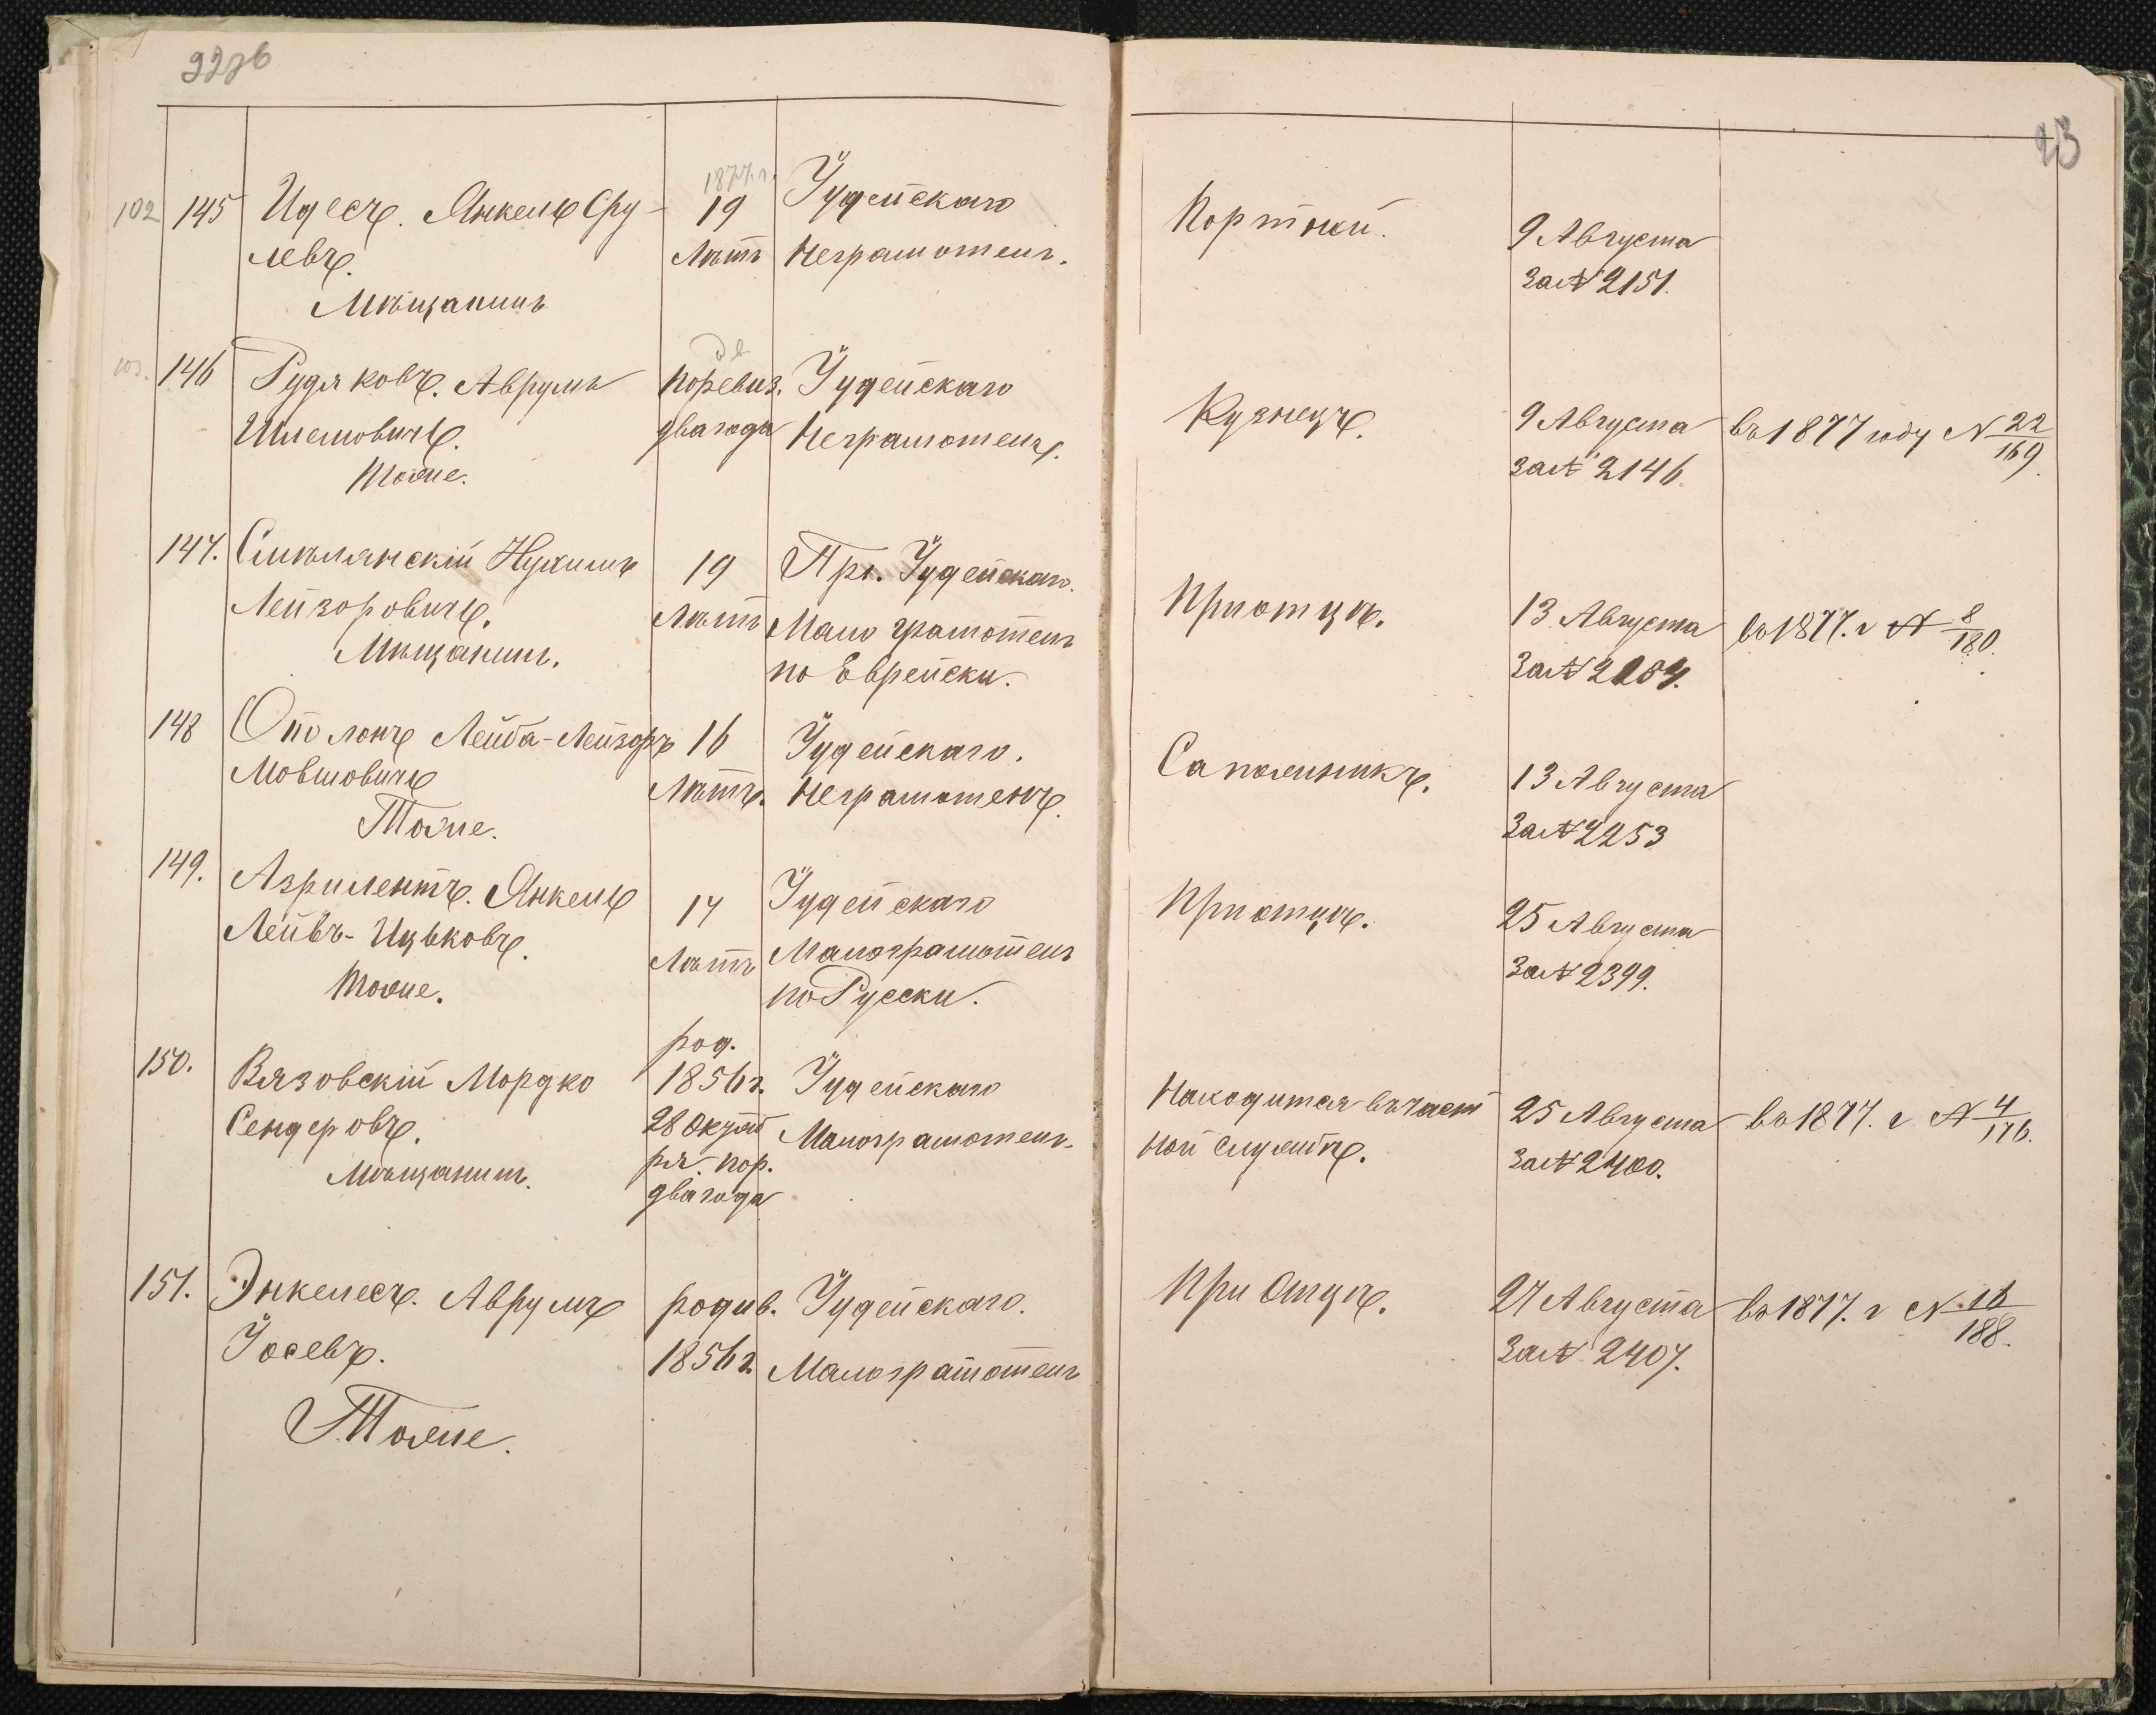 22об
23
1877.г.
102 145 Идесъ. Янкель Сру-
левъ.
Мѣщанинъ
19
Лѣтъ
Іудейскаго
Неграмотенъ.
Портной.
9 Августа
За № 2151.
103. 146 Рудяковъ. Аврумъ
Шлемовичъ.
Тоже.
поревиз.
два года
Іудейскаго
Неграмотенъ.
Кузнецъ.
9 Августа
за № 2146.
въ 1877 году № 22/169.
147. Смѣлянскій Нухимъ
Лейзоровичъ.
Мѣщанинъ.
19
Лѣтъ
Іудейскаго.
Мало грамотенъ
по Еврейски.
При отцѣ.
13 Августа
За №
въ 1877. г № 8/180.
148 Ополонъ Лейба-Лейзоръ
Мовшовичъ
Тоже.
16
Лѣтъ.
Іудейскаго.
Неграмотенъ.
Сапожникъ.
13 Августа
За № 2253
149. Азрилентъ. Янкель
Лейвъ-Ицьковъ.
Тоже.
17
Лѣтъ
Іудейскаго
Малограмотенъ
по Русски.
При отцѣ.
25 Августа
За № 2399.
150. Вязовскій Мордко
Сендеровъ.
Мѣщанинъ.
род.
1856 г.
28 Октяб
ря. пор.
два года
Іудейскаго
Малограмотенъ.
Находится въ част
ной службѣ.
25 Августа
За № 2400.
въ 1877. г № 4/176.
151. Энкелесъ. Аврумъ
Іосевъ.
Тоже.
родив.
1856 г.
Іудейскаго.
Малограмотенъ
При Отцѣ.
27 Августа
За № 2407.
въ 1877. г № 16/188.